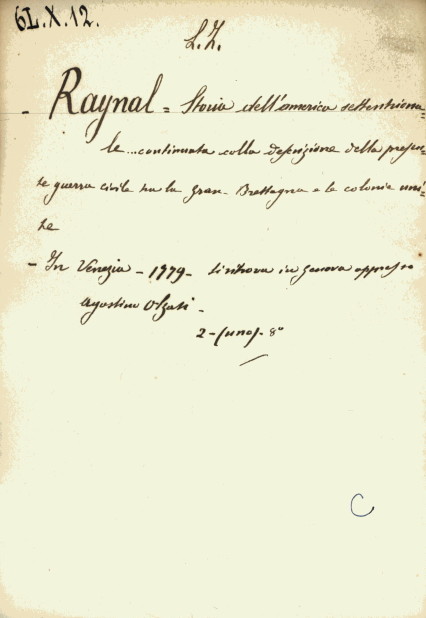 6L.X.12.
L.Z.
- Raynal = Storia dell'america settentriona-
le... continuata colla descrizione della presen-
te guerra civile tra la Gran-Brettagna e le colonie uni-
te
- In Venezia - 1779 - si trova in genova appresso
Agostino Olzati -
2 - (uno) - 8º
C